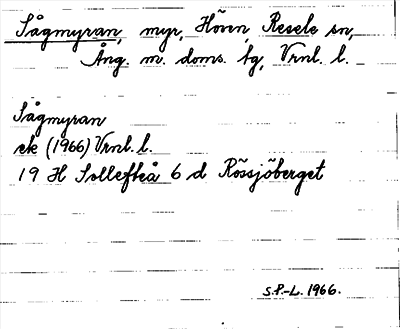 Sågmyran, myr, Hoven, Resele sn,
Ång. m. doms. fg, Vrnl. l.
Sågmyran
ek (1966) Vrnl. l.
19 H Sollefteå 6 d Rössjöberget
S.P.-L. 1966.